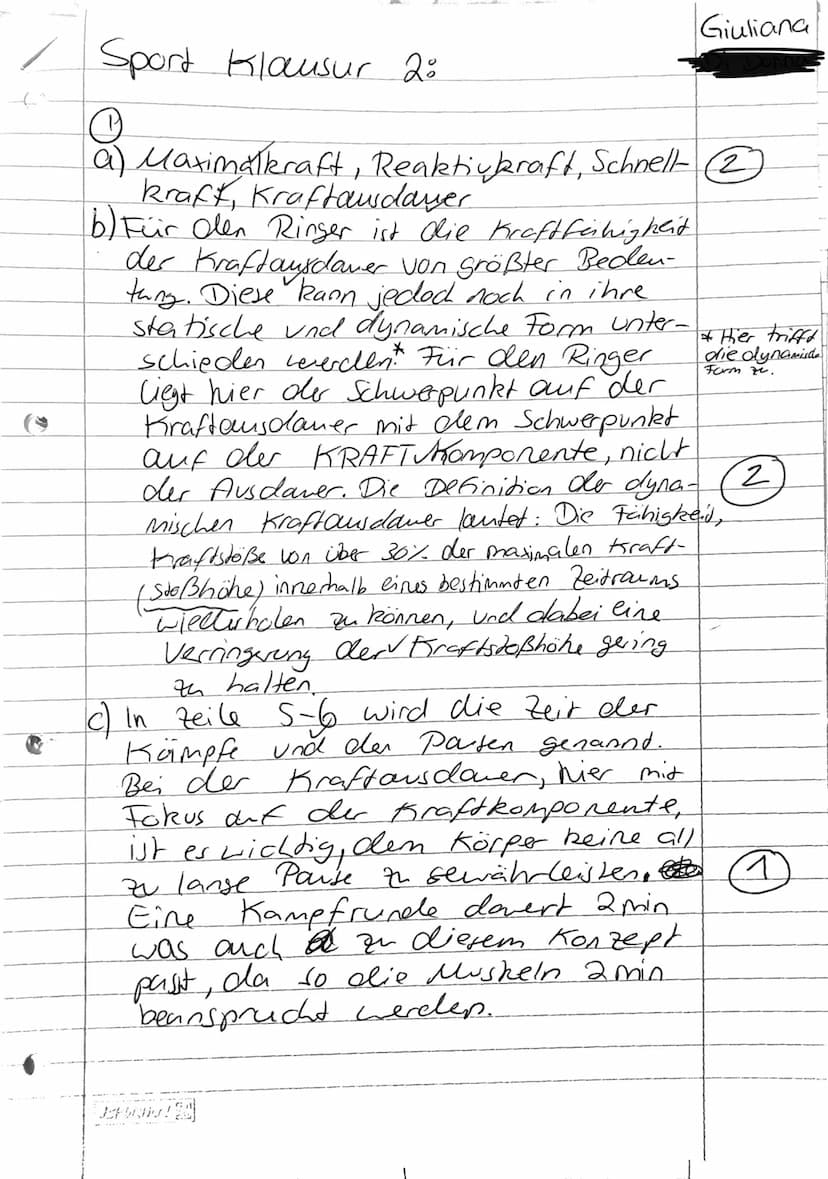 Giuliana
Sport Klausur 2:
1
a) Maximalkraft, Reaktivkraft, Schnell-
2
kraft, Kraftausdauer
b) Für den Ringer ist die Kraftfähigkeit
der Kraftausdauer von größter Bedeu-
tung. Diese kann jedoch noch in ihre
statische und dynamische Form unter-
schieden werden.* Für den Ringer
* Hier trifft
die dynamische
Form zu.
liegt hier der Schwerpunkt auf der
Kraftausdauer mit dem Schwerpunkt
auf der KRAFTKomponente, nicht
der Ausdauer. Die Definition der dyna-
2
mischen Kraftausdauer lautet: Die Fähigkeit,
Kraftstöße von über 30% der maximalen Kraft-
(stoßhöhe) innerhalb eines bestimmten Zeitraums
wiederholen zu können, und dabei eine
Verringerung der Kraftstoßhöhe gering
zu halten.
c) In Zeile 5-6 wird die Zeit der
Kämpfe und der Pausen genannt.
Bei der Kraftausdauer, hier mit
Fokus auf der Kraftkomponente,
ist es wichtig, dem Körper keine all
zu lange Pause zu gewährleisten.
1
Eine Kampfrunde dauert 2min
was auch zu diesem Konzept
passt, da so die Muskeln 2min
beansprucht werden.